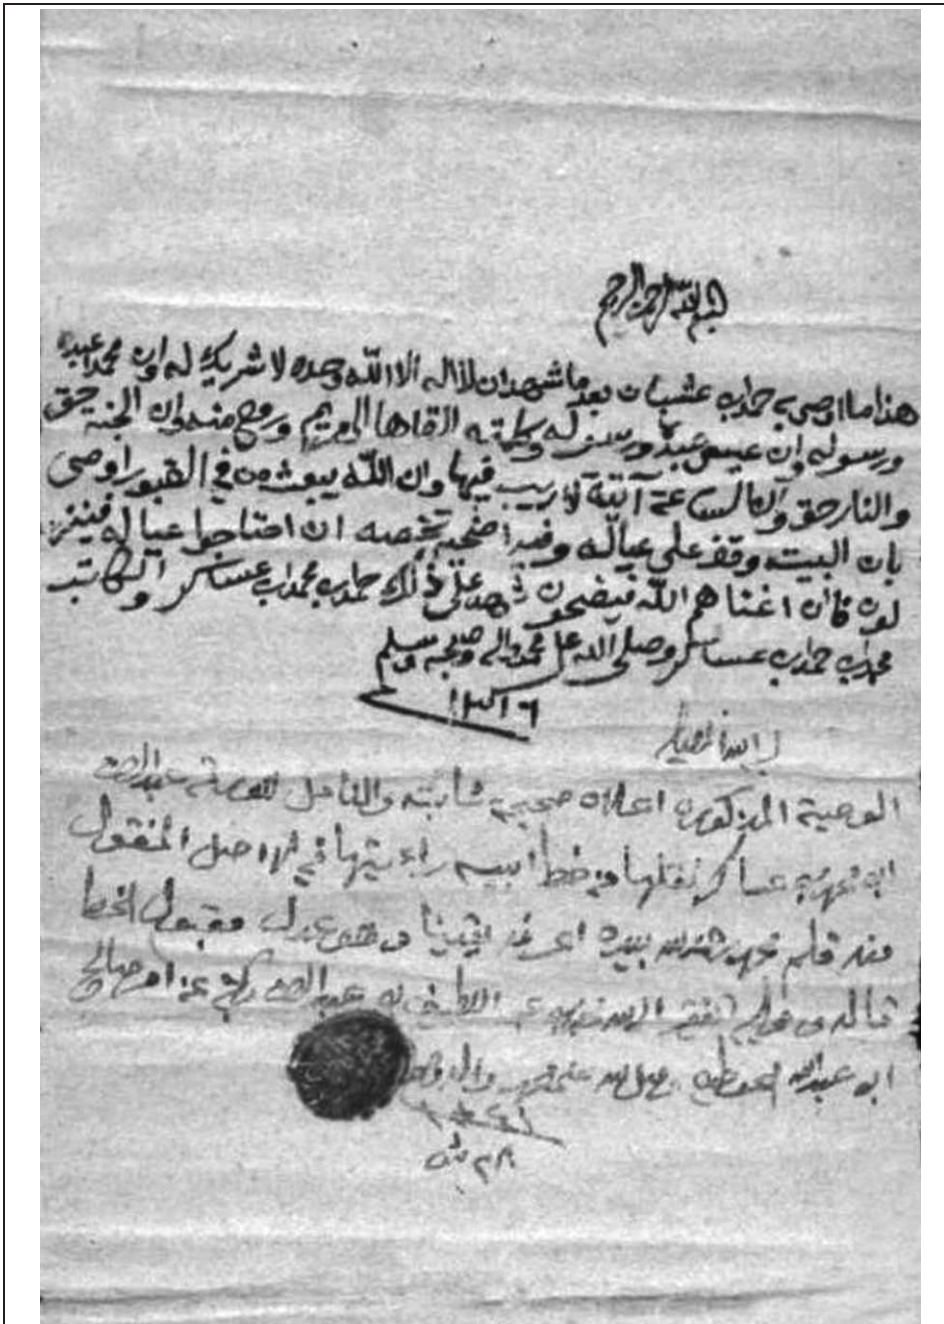 بسم الله الرحمن الرحيم
هذا ما اوصى به حمد بن عشبان بعد ما شهد ان لا اله الا الله وحده لا شريك له وان محمدا عبده
ورسوله وان عيسى عبده ورسوله وكلمته القاها الى مريم وروح منه وان الجنة حق
والنار حق وان الساعة آتية لا ريب فيها وان الله يبعث من في القبور اوصى
بان البيت وقف على عياله وفيه اضحيه تخصه ان احتاجوا عياله فينز
لون فان اغناهم الله فيضحون شهد على ذلك حمد بن محمد بن عساكر والكاتب
محمد بن حمد بن عساكر وصلى الله على محمد واله وصحبه وسلم
الوصية المذكورة اعلاه صحيحه ثابته والناقل للوصية عبدالرحمن
ابن محمد بن عساكر نقلها من خط ابيه راءيتها في الاصل المنقول
منه قلم محمد بيده اعرفه يقينا وهو عدل مقبول الخط
قاله الفقير الى الله عبدالرحمن
ابن عبدالله وصلى الله على محمد واله وصحبه